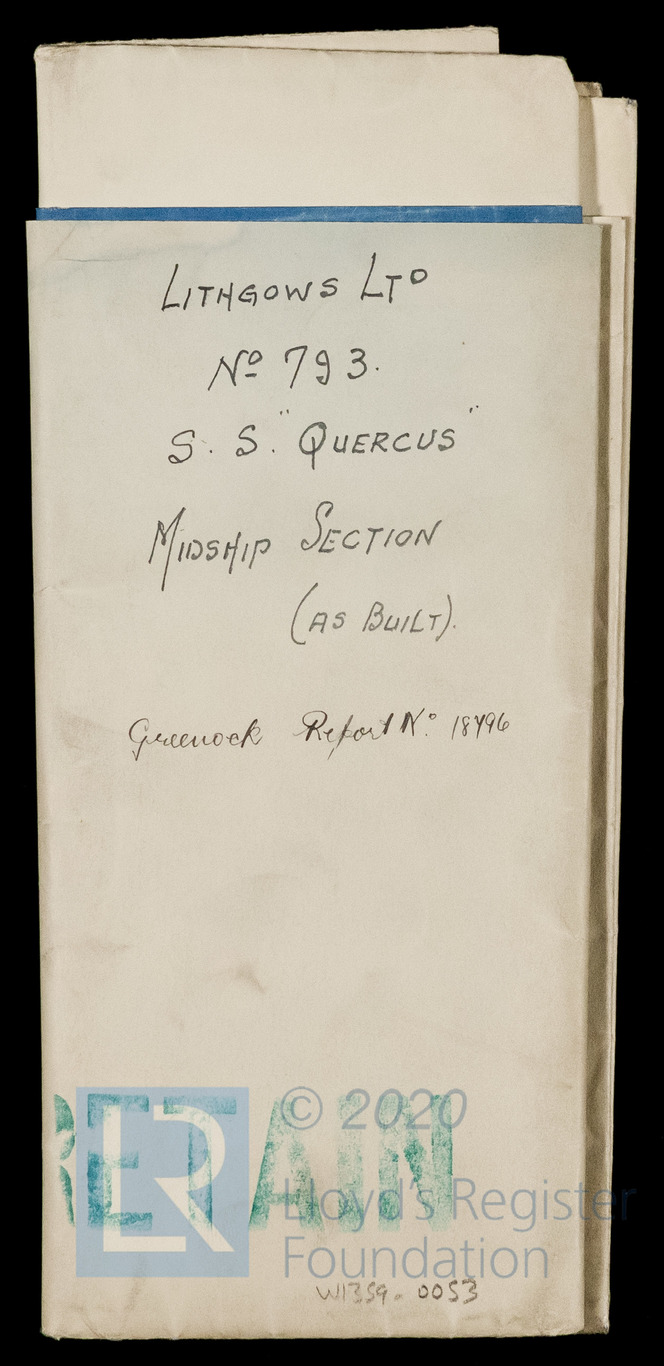 LITHGOWS LTD
Nº 793.
S. S. "QUERCUS"
MIDSHIP SECTION
(AS BUILT).
Greenock Report Nº 18796
RETAIN
LR
© 2020
Lloyd's Register
Foundation
W1359-0053